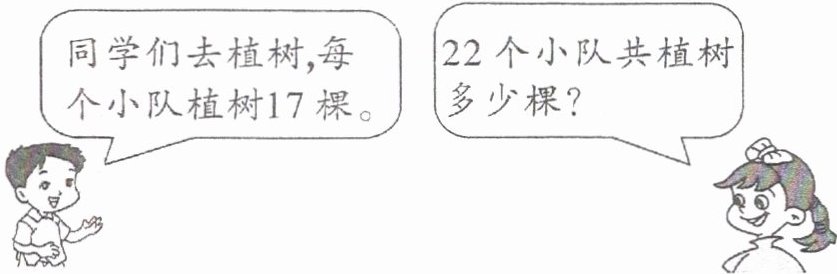 同学们去植树,每
个小队植树17棵。
22个小队共植树
多少棵?